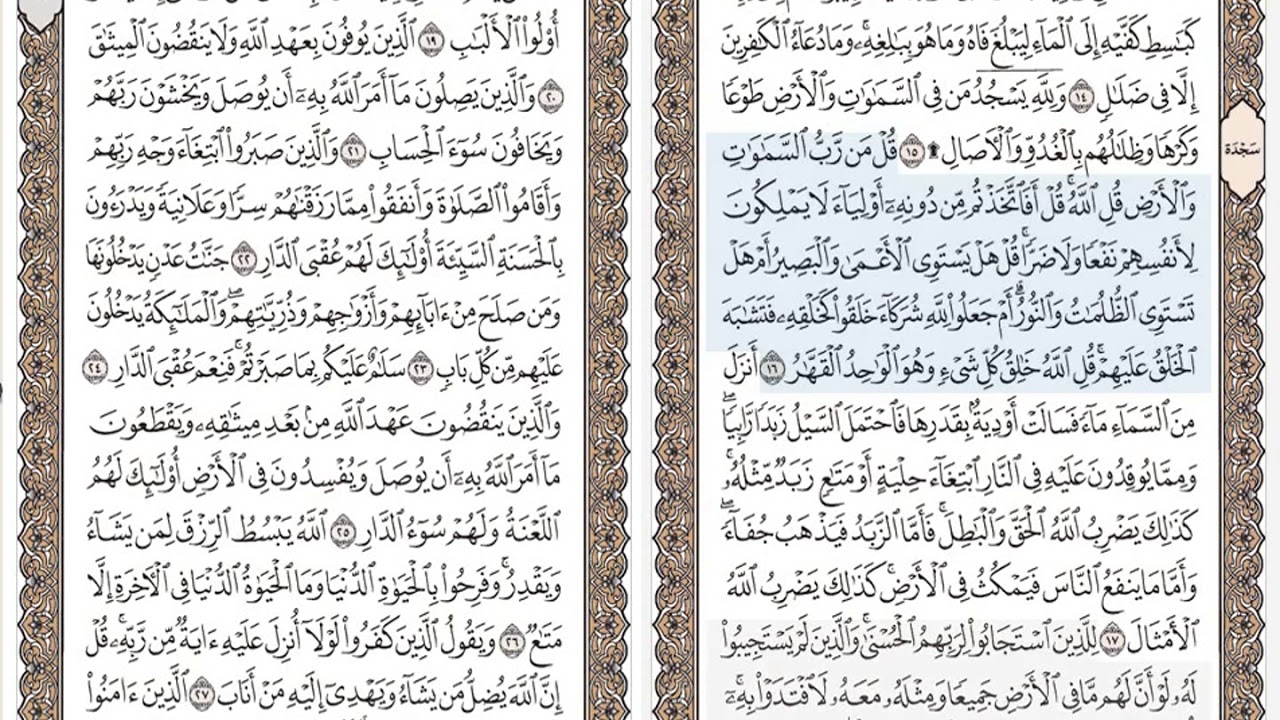 كَبَٰسِطِ كَفَّيْهِ إِلَى ٱلْمَآءِ لِيَبْلُغَ فَاهُ وَمَا هُوَ بِبَٰلِغِهِۦۚ وَمَا دُعَآءُ ٱلْكَٰفِرِينَ
إِلَّا فِى ضَلَٰلٍ ١٤ وَلِلَّهِ يَسْجُدُ مَن فِى ٱلسَّمَٰوَٰتِ وَٱلْأَرْضِ طَوْعًا
وَكَرْهًا وَظِلَٰلُهُم بِٱلْغُدُوِّ وَٱلْءَاصَالِ ۩ ١٥ قُلْ مَن رَّبُّ ٱلسَّمَٰوَٰتِ
وَٱلْأَرْضِ قُلِ ٱللَّهُۚ قُلْ أَفَٱتَّخَذْتُم مِّن دُونِهِۦٓ أَوْلِيَآءَ لَا يَمْلِكُونَ
لِأَنفُسِهِمْ نَفْعًا وَلَا ضَرًّاۚ قُلْ هَلْ يَسْتَوِى ٱلْأَعْمَىٰ وَٱلْبَصِيرُ أَمْ هَلْ
تَسْتَوِى ٱلظُّلُمَٰتُ وَٱلنُّورُۗ أَمْ جَعَلُوا۟ لِلَّهِ شُرَكَآءَ خَلَقُوا۟ كَخَلْقِهِۦ فَتَشَٰبَهَ
ٱلْخَلْقُ عَلَيْهِمْۚ قُلِ ٱللَّهُ خَٰلِقُ كُلِّ شَىْءٍ وَهُوَ ٱلْوَٰحِدُ ٱلْقَهَّٰرُ ١٦ أَنزَلَ
مِنَ ٱلسَّمَآءِ مَآءً فَسَالَتْ أَوْدِيَةٌۢ بِقَدَرِهَا فَٱحْتَمَلَ ٱلسَّيْلُ زَبَدًا رَّابِيًاۖ
وَمِمَّا يُوقِدُونَ عَلَيْهِ فِى ٱلنَّارِ ٱبْتِغَآءَ حِلْيَةٍ أَوْ مَتَٰعٍ زَبَدٌ مِّثْلُهُۥۚ
كَذَٰلِكَ يَضْرِبُ ٱللَّهُ ٱلْحَقَّ وَٱلْبَٰطِلَۚ فَأَمَّا ٱلزَّبَدُ فَيَذْهَبُ جُفَآءًۖ
وَأَمَّا مَا يَنفَعُ ٱلنَّاسَ فَيَمْكُثُ فِى ٱلْأَرْضِۚ كَذَٰلِكَ يَضْرِبُ ٱللَّهُ
ٱلْأَمْثَالَ ١٧ لِلَّذِينَ ٱسْتَجَابُوا۟ لِرَبِّهِمُ ٱلْحُسْنَىٰۚ وَٱلَّذِينَ لَمْ يَسْتَجِيبُوا۟
لَهُۥ لَوْ أَنَّ لَهُم مَّا فِى ٱلْأَرْضِ جَمِيعًا وَمِثْلَهُۥ مَعَهُۥ لَٱفْتَدَوْا۟ بِهِۦٓۚ
سَجْدَة
أُو۟لُوا۟ ٱلْأَلْبَٰبِ ١٩ ٱلَّذِينَ يُوفُونَ بِعَهْدِ ٱللَّهِ وَلَا يَنقُضُونَ ٱلْمِيثَٰقَ
٢٠ وَٱلَّذِينَ يَصِلُونَ مَآ أَمَرَ ٱللَّهُ بِهِۦٓ أَن يُوصَلَ وَيَخْشَوْنَ رَبَّهُمْ
وَيَخَافُونَ سُوٓءَ ٱلْحِسَابِ ٢١ وَٱلَّذِينَ صَبَرُوا۟ ٱبْتِغَآءَ وَجْهِ رَبِّهِمْ
وَأَقَامُوا۟ ٱلصَّلَوٰةَ وَأَنفَقُوا۟ مِمَّا رَزَقْنَٰهُمْ سِرًّا وَعَلَانِيَةً وَيَدْرَءُونَ
بِٱلْحَسَنَةِ ٱلسَّيِّئَةَ أُو۟لَٰٓئِكَ لَهُمْ عُقْبَى ٱلدَّارِ ٢٢ جَنَّٰتُ عَدْنٍ يَدْخُلُونَهَا
وَمَن صَلَحَ مِنْ ءَابَآئِهِمْ وَأَزْوَٰجِهِمْ وَذُرِّيَّٰتِهِمْۖ وَٱلْمَلَٰٓئِكَةُ يَدْخُلُونَ
عَلَيْهِم مِّن كُلِّ بَابٍ ٢٣ سَلَٰمٌ عَلَيْكُم بِمَا صَبَرْتُمْۚ فَنِعْمَ عُقْبَى ٱلدَّارِ ٢٤
وَٱلَّذِينَ يَنقُضُونَ عَهْدَ ٱللَّهِ مِنۢ بَعْدِ مِيثَٰقِهِۦ وَيَقْطَعُونَ
مَآ أَمَرَ ٱللَّهُ بِهِۦٓ أَن يُوصَلَ وَيُفْسِدُونَ فِى ٱلْأَرْضِ أُو۟لَٰٓئِكَ لَهُمُ
ٱللَّعْنَةُ وَلَهُمْ سُوٓءُ ٱلدَّارِ ٢٥ ٱللَّهُ يَبْسُطُ ٱلرِّزْقَ لِمَن يَشَآءُ
وَيَقْدِرُۚ وَفَرِحُوا۟ بِٱلْحَيَوٰةِ ٱلدُّنْيَا وَمَا ٱلْحَيَوٰةُ ٱلدُّنْيَا فِى ٱلْءَاخِرَةِ إِلَّا
مَتَٰعٌ ٢٦ وَيَقُولُ ٱلَّذِينَ كَفَرُوا۟ لَوْلَآ أُنزِلَ عَلَيْهِ ءَايَةٌ مِّن رَّبِّهِۦۚ قُلْ
إِنَّ ٱللَّهَ يُضِلُّ مَن يَشَآءُ وَيَهْدِىٓ إِلَيْهِ مَنْ أَنَابَ ٢٧ ٱلَّذِينَ ءَامَنُوا۟